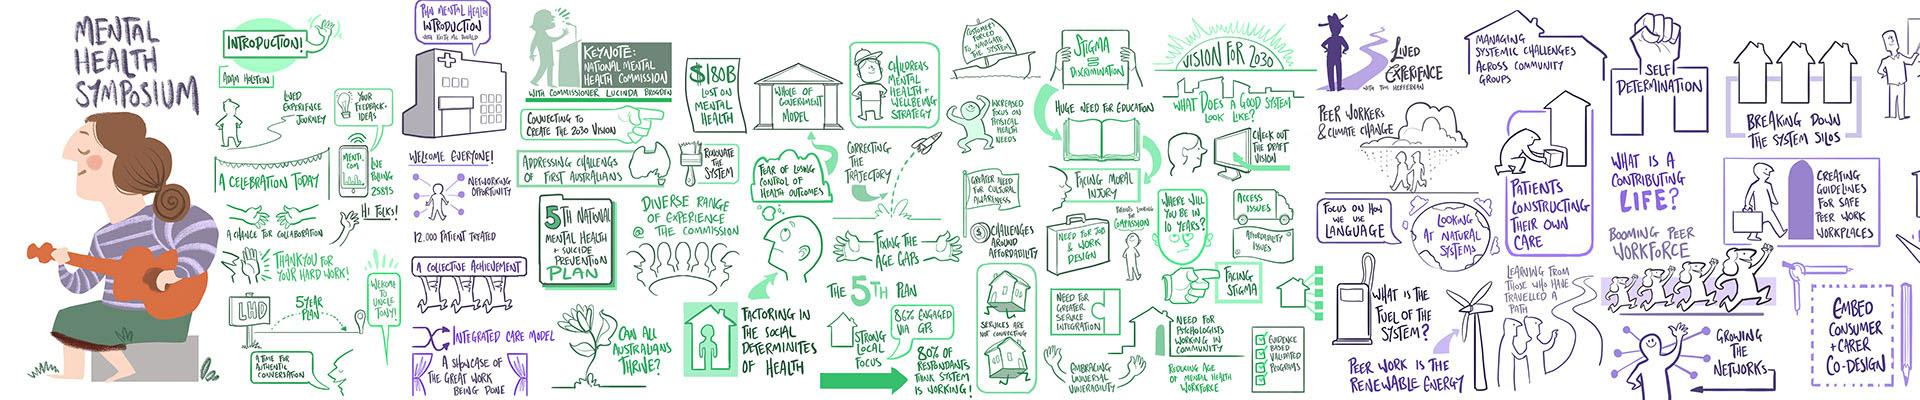 MENTAL
HEALTH
SYMPOSIUM
INTRODUCTION!
ADAM
LIVED
EXPERIENCE
JOURNEY
YOUR
FEEDBACK +
IDEAS
A CELEBRATION TODAY
MENTI.
COM
LIVE
POLLING
25819
A CHANCE FOR COLLABORATION
HI FOLKS!
THANKYOU FOR
YOUR HARD WORK!
WELCOME
TO
UNCLE
TONY!
LHD
5 YEAR
PLAN
A TIME FOR
AUTHENTIC
CONVERSATION
MENTAL HEALTH
INTRODUCTION
WITH
WELCOME EVERYONE!
NETWORKING
OPPORTUNITY
12,000 PATIENT TREATED
A COLLECTIVE ACHIEVEMENT
INTEGRATED CARE MODEL
A SHOWCASE OF
THE GREAT WORK
BEING DONE
KEYNOTE:
NATIONAL MENTAL
HEALTH COMMISSION
WITH COMMISSIONER LUCINDA BROGDEN
CONNECTING TO
CREATE THE 2030 VISION
ADDRESSING CHALLENGS
OF FIRST AUSTRALIANS
5TH NATIONAL
MENTAL HEALTH
+ SUICIDE
PREVENTION
PLAN
DIVERSE RANGE
OF EXPERIENCE
@ THE COMMISSION
CAN ALL
AUSTRALIANS
THRIVE?
$180B
LOST ON
MENTAL
HEALTH
RENOVATE
THE
SYSTEM
WHOLE OF
GOVERNMENT
MODEL
FEAR OF LOSING
CONTROL OF
HEALTH OUTCOMES
FACTORING IN
THE SOCIAL
DETERMINITES
OF HEALTH
CHILDRENS
MENTAL
HEALTH +
WELLBEING
STRATEGY
CORRECTING
THE
TRAJECTORY
FIXING THE
AGE GAPS
THE 5TH PLAN
STRONG
LOCAL
FOCUS
86% ENGAGED
VIA GP.
80% OF
RESPONDANTS
THINK SYSTEM
IS WORKING!
CUSTOMERS
FORCED
TO NAVIGATE
THE SYSTEM
INCREASED
FOCUS ON
PHYSICAL
HEALTH
NEEDS
GREATER NEED
FOR CULTURAL
AWARENESS
$ CHALLENGES
AROUND
AFFORDABILITY
SERVICES ARE
NOT CONNECTING
STIGMA
=
DISCRIMINATION
HUGE NEED FOR EDUCATION
FACING MORAL
INJURY
NEED FOR JOB
& WORK
DESIGN
COMPASSION
NEED FOR
GREATER
SERVICE
INTEGRATION
EMBRACING
UNIVERSAL
VULNERABILITY
VISION FOR 2030
WHAT DOES A GOOD SYSTEM
LOOK LIKE?
CHECK OUT
THE DRAFT
VISION
WHERE WILL
YOU BE IN
10 YEARS?
ACCESS
ISSUES
AFFORDABILITY
ISSUES
FACING
STIGMA
NEED FOR
PSYCHOLOGISTS
WORKING IN
COMMUNITY
REDUCING AGE
OF MENTAL HEALTH
WORKFORCE
EVIDENCE
BASED
VALIDATED
PROGRAMS
LIVED
EXPERIENCE
WITH TIM HEFFERNAN
PEER WORKERS
& CLIMATE CHANGE
FOCUS ON HOW
WE USE
LANGUAGE
LOOKING
AT NATURAL
SYSTEMS
WHAT IS THE
FUEL OF THE
SYSTEM?
PEER WORK IS THE
RENEWABLE ENERGY
MANAGING
SYSTEMIC CHALLENGES
ACROSS COMMUNITY
GROUPS
PATIENTS
CONSTRUCTING
THEIR OWN
CARE
LEARNING FROM
THOSE WHO HAVE
TRAVELLED A
PATH
SELF
DETERMINATION
WHAT IS A
CONTRIBUTING
LIFE?
BOOMING PEER
WORKFORCE
GROWING
THE
NETWORKS
BREAKING DOWN
THE SYSTEM SILOS
CREATING
GUIDELINES
FOR SAFE
PEER WORK
WORKPLACES
EMBED
CONSUMER
+ CARER
CO-DESIGN